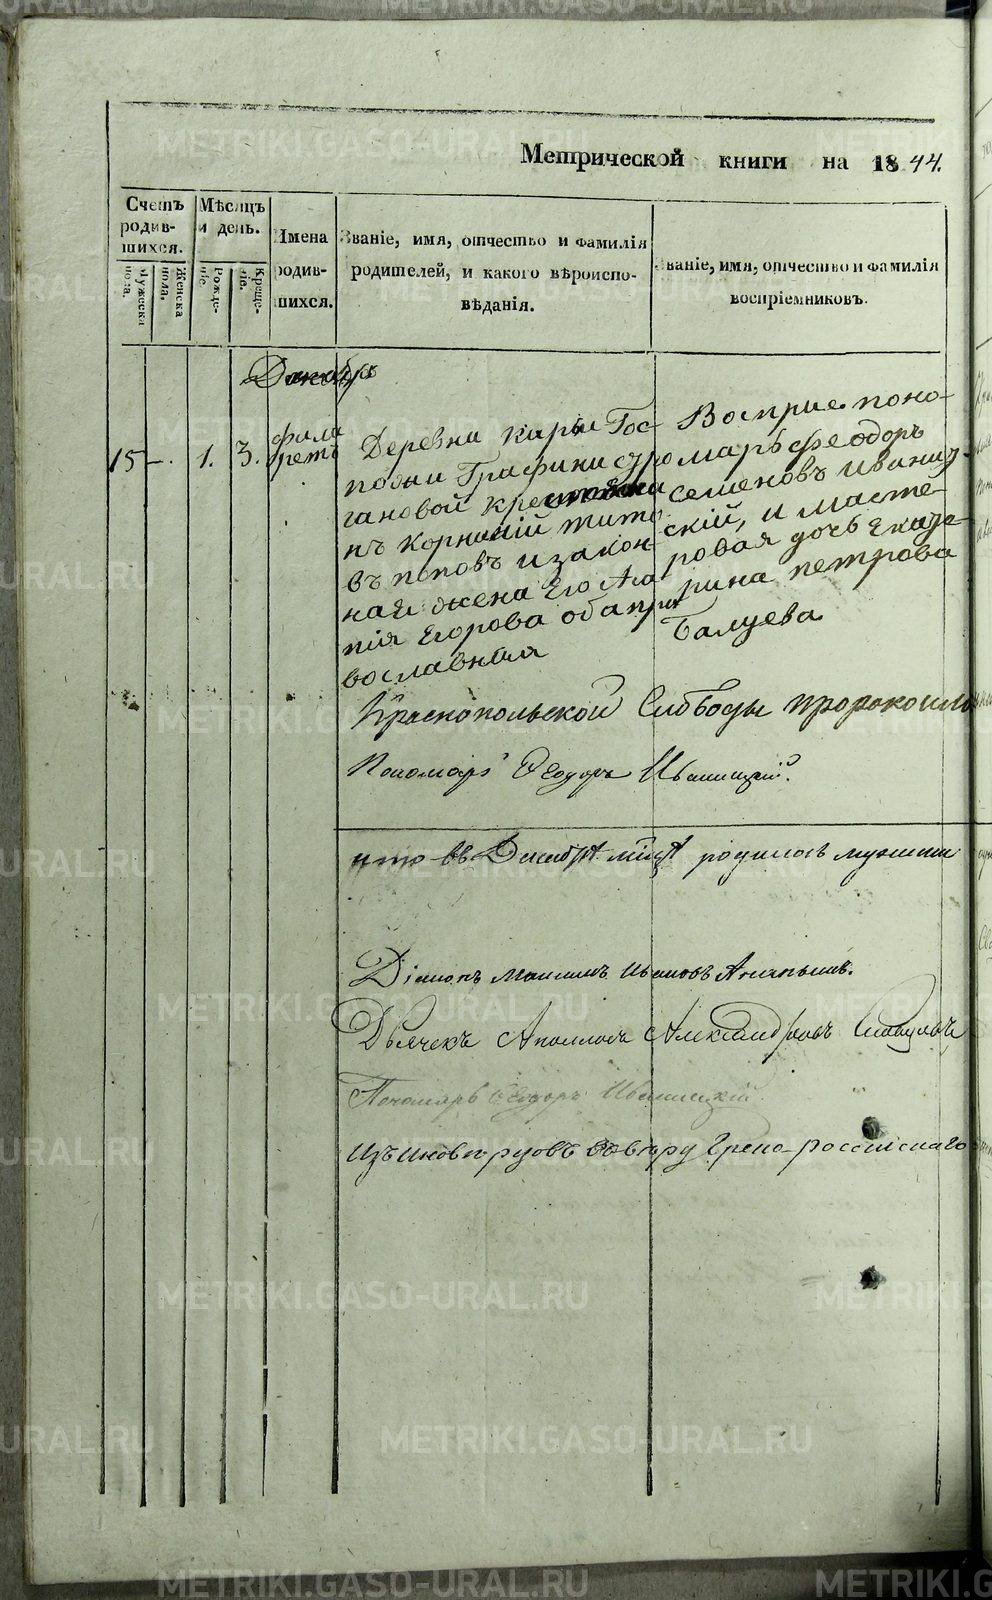 Метрической книги на 1844.
Счетъ родив-шихся.
Мужеска пола.
Женска пола.
Мѣсяцъ и день.
Рожде-ніе.
Креще-ніе.
Имена родив-шихся.
Званіе, имя, отчество и фамилія
родителей, и какого вѣроиспо-
вѣданія.
Званіе, имя, отчество и фамилія
воспріемниковъ.
Декабрь
15 — 1. 3.
Фила
ретъ
Деревни Кары Гос-
пожи Графини стро
гановой крестьяни
нъ Корнилій Тито
въ поповъ и закон-
ная жена Его Ага
пія Егорова оба пра
вославныя
Восприе. поно-
марь Феодоръ
Семеновъ Иваниц-
скій, и масте-
ровая дочь Екате-
рина петрова
Балуева
Краснопольской Слободы пророкоило
Пономарь Ѳеодоръ Иваницкій.
что въ Декабрѣ мцѣ родилось мужеска
Діаконъ Максимъ Ивановъ
Дьячекъ Аполлосъ Александровъ
Пономарь Ѳеодоръ Иваницкій
Изъ иновѣрцовъ въ вѣру Греко-россійскаго
METRIKI.GASO-URAL.RU